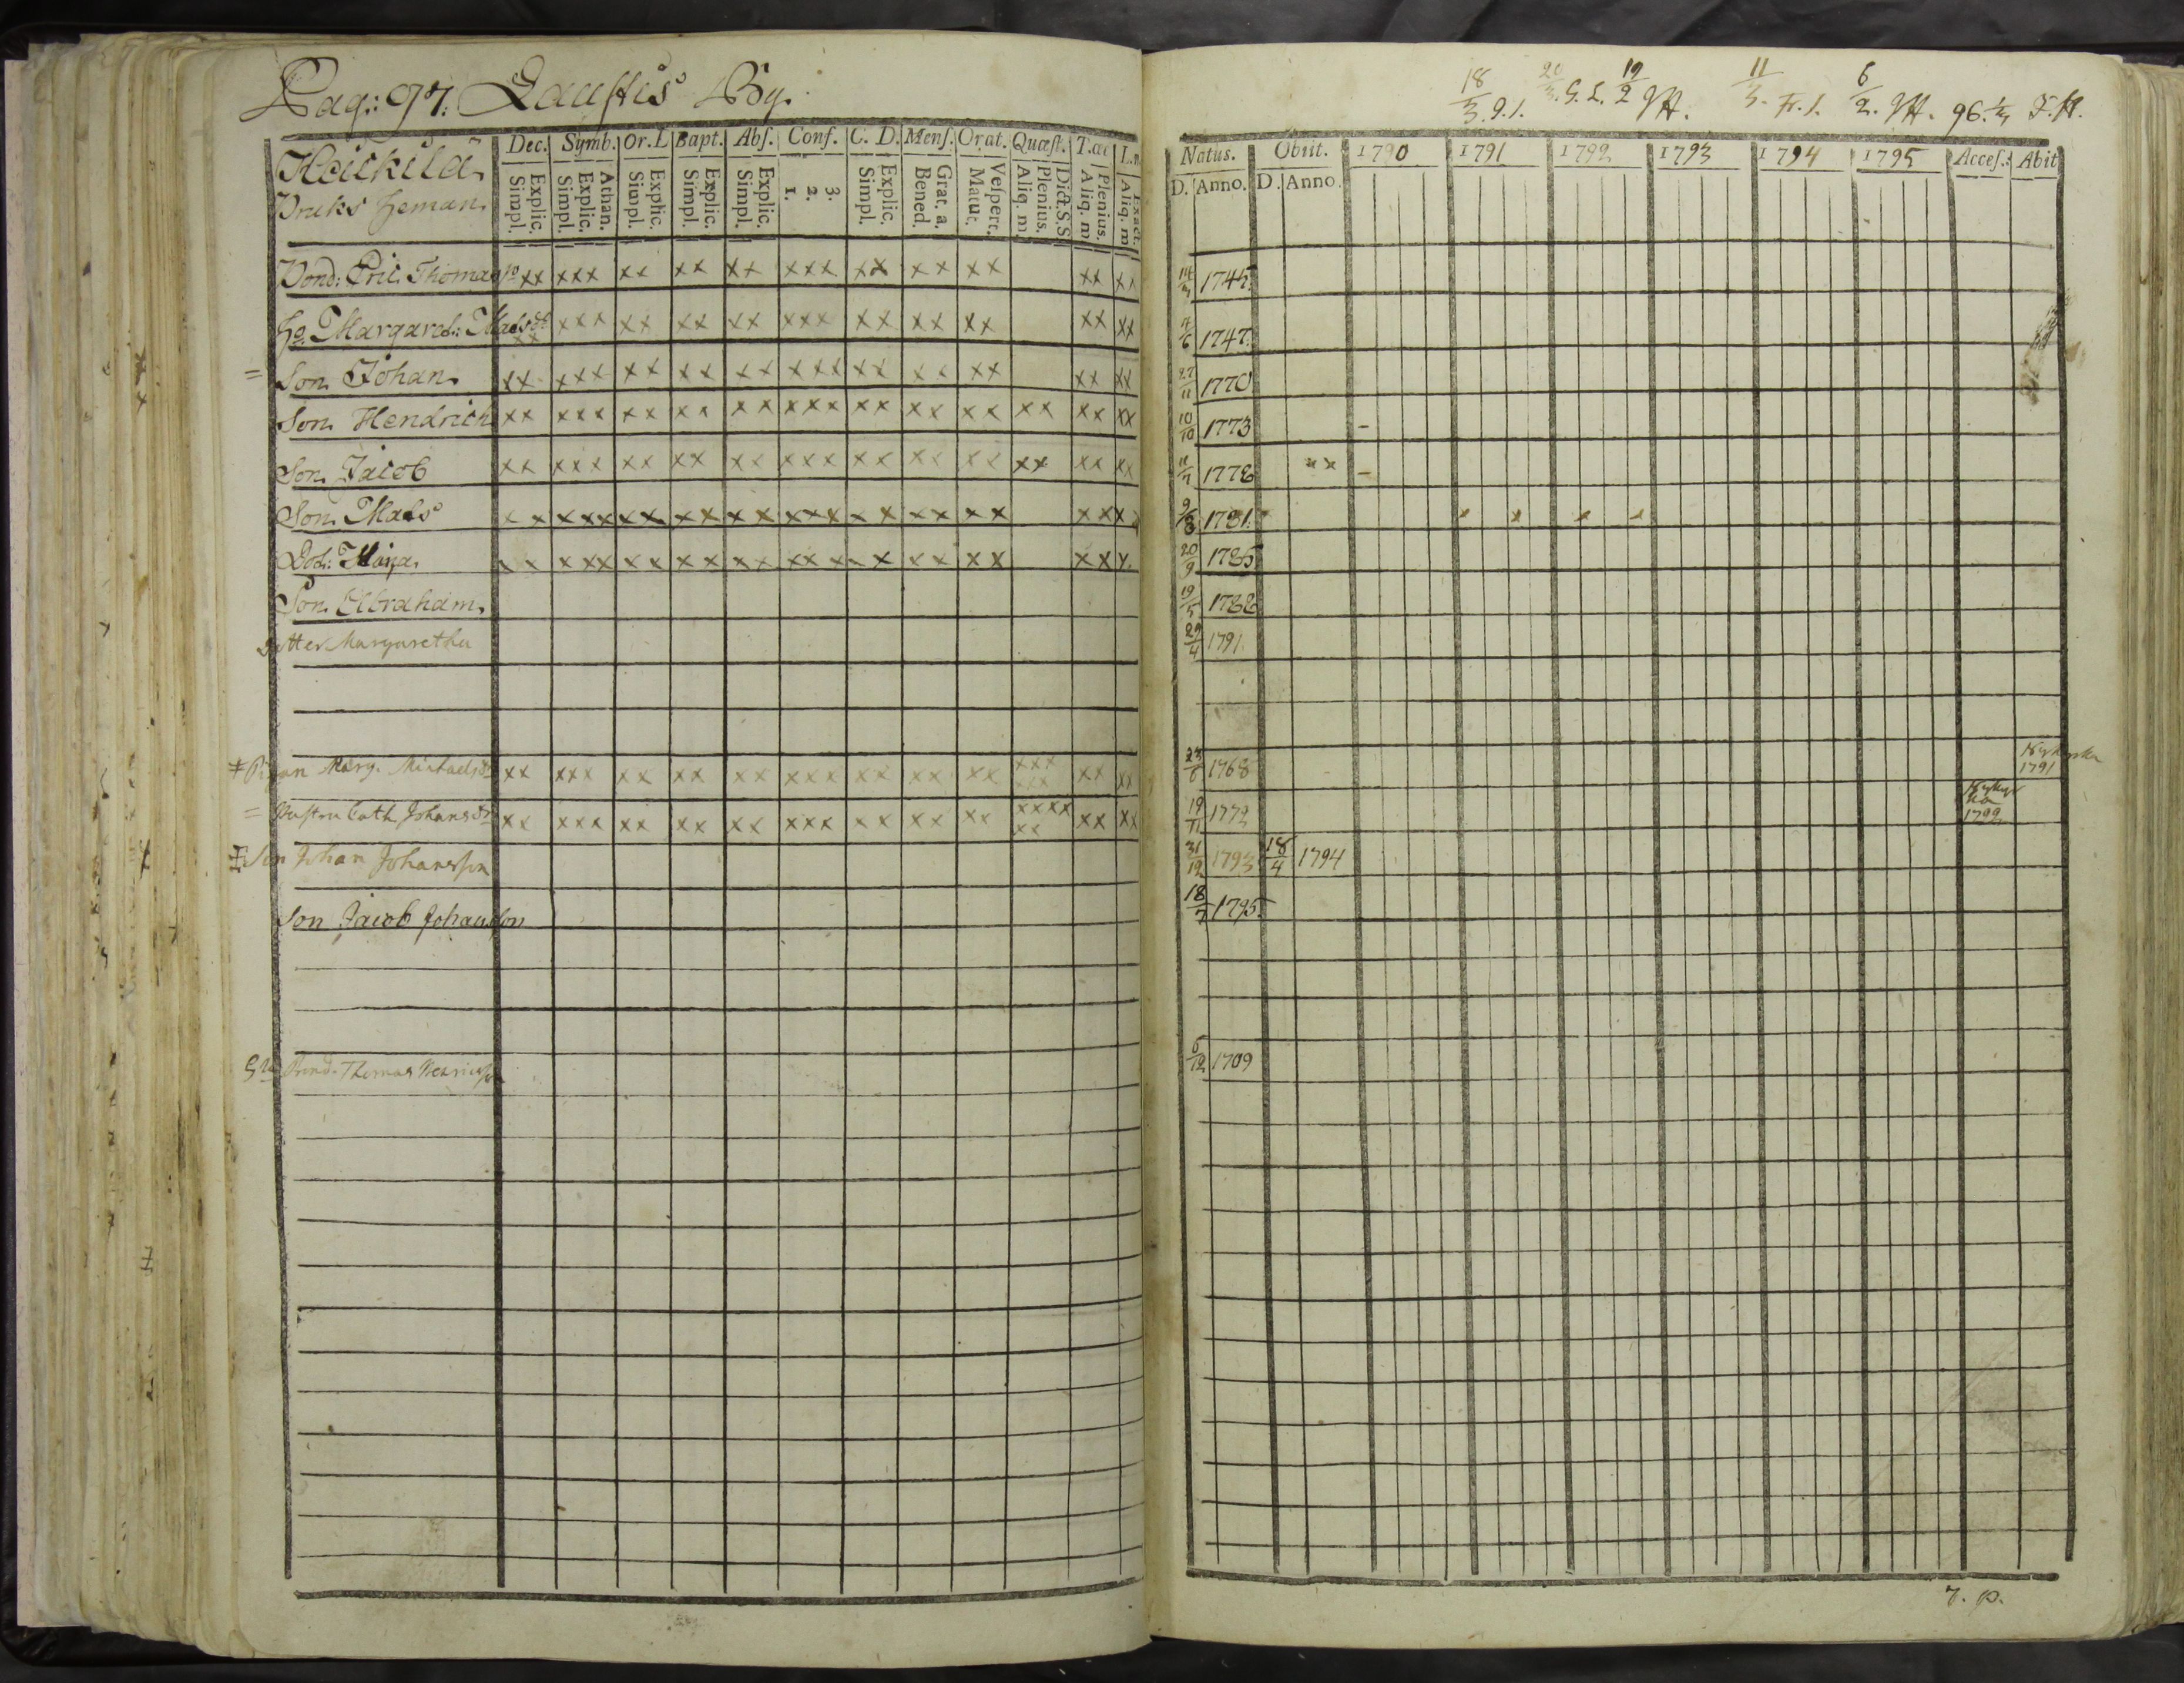 Pag: 97. Laustis By.
Heickilä
Bruks heman.
Dec. Symb. Or. L Bapt. Abs. Conf. C. D. Mens. Orat. Quæst. T. æc L.
Explic. Simpl. Athan. Explic. Simpl. Explic. Simpl. Explic. Simpl. Explic. Simpl. 3. 2. 1. Explic. Simpl. Grat. a. Bened. Vespert. Matut. Dict. S.S Plenius. Aliq. m. Plenius. Aliq. m. Exact. Aliq. m
Bond: Eric Thomas xx xxx xx xx xx xxx xx xx xx xx xx
ho Margaret: Mats dr xx xxx xx xx xx xxx xx xx xx xx xx
= Son Johan xx xxx xx xx xx xxx xx xx xx xx xx
Son Hendrich xx xxx xx xx xx xxx xx xx xx xx xx xx
Son Jacob xx xxx xx xx xx xxx xx xx xx xx xx xx
Son Mats xx xxx xx xx xx xxx xx xx xx xx x
Dot: Maja xx xxx xx xx xx xxx xx xx xx xx x
Son Abraham
Dotter Margaretha
Pigan Marg. Michaelsdr xx xxx xx xx xx xxx xx xx xx xxx xxx xx xx
= Hustru Cath Johansdr xx xxx xx xx xx xxx xx xx xx xxxx xx xx xx
Son Johan Johansson
Son Jacob Johansson
Bond. Thomas Henricsson
18/3 20/3 G. L. 19/2 11/3 Fr. 6/2 96.
Natus. Obiit. 1790 1791 1792 1793 1794 1795 Acces. Abit
D. Anno. D. Anno.
1745
1747
27/11 1770
10/10 1773 -
1778 xx -
9/8 1781
20/9 1785
19/5 1788
29/4 1791
23/6 1768 1791
19/11 1772 1792
31/12 1793 18/4 1794
18/7 1795
6/12 1709